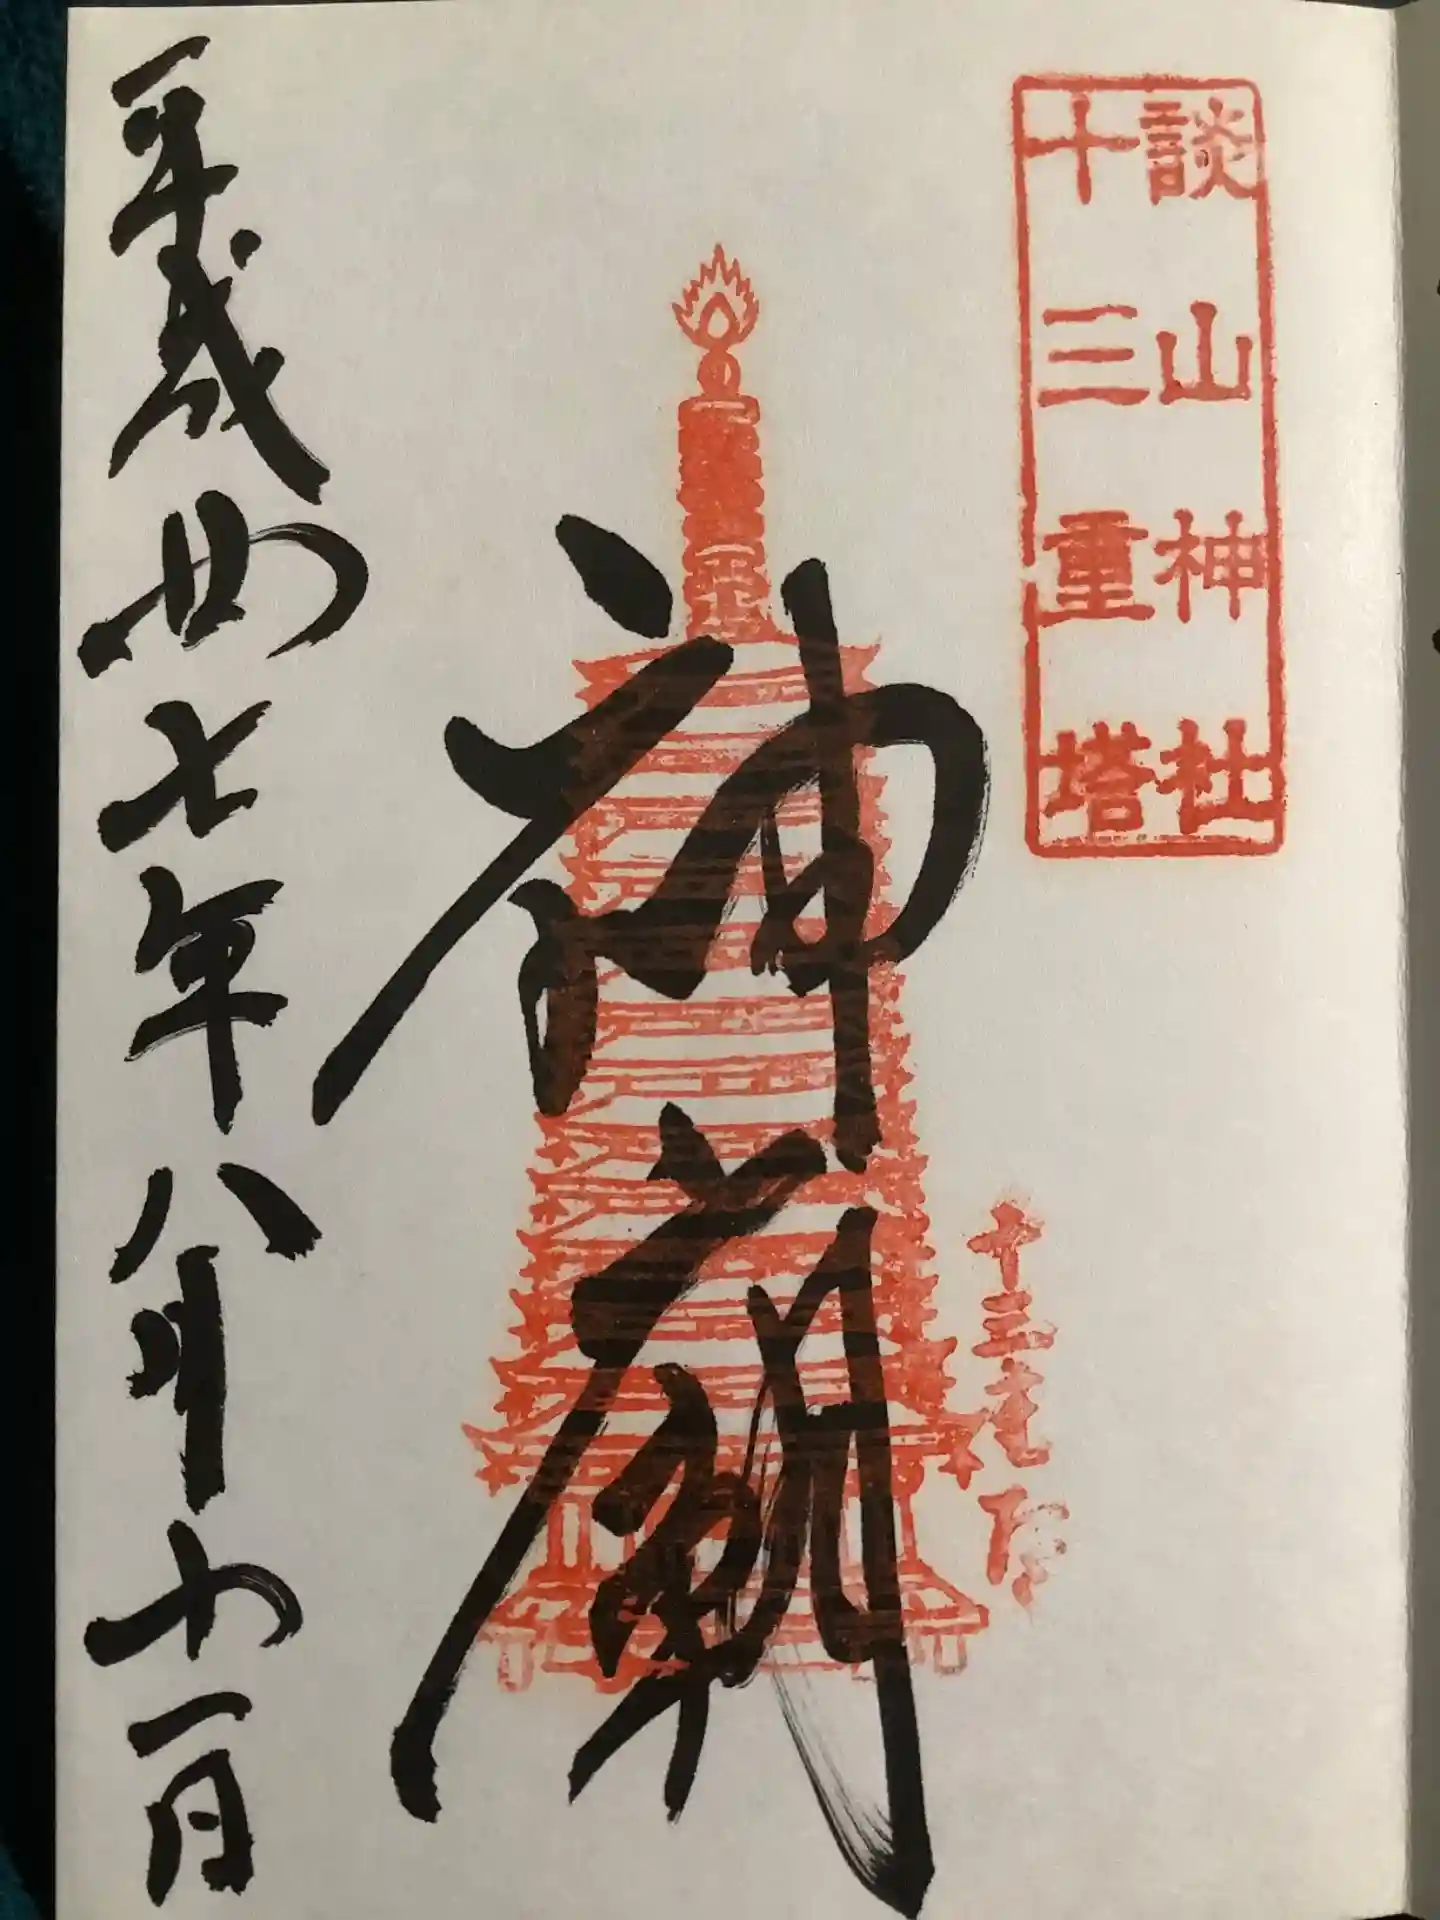 談山神社
十三重塔
神廟
十三重塔
平成廿七年八月廿一日